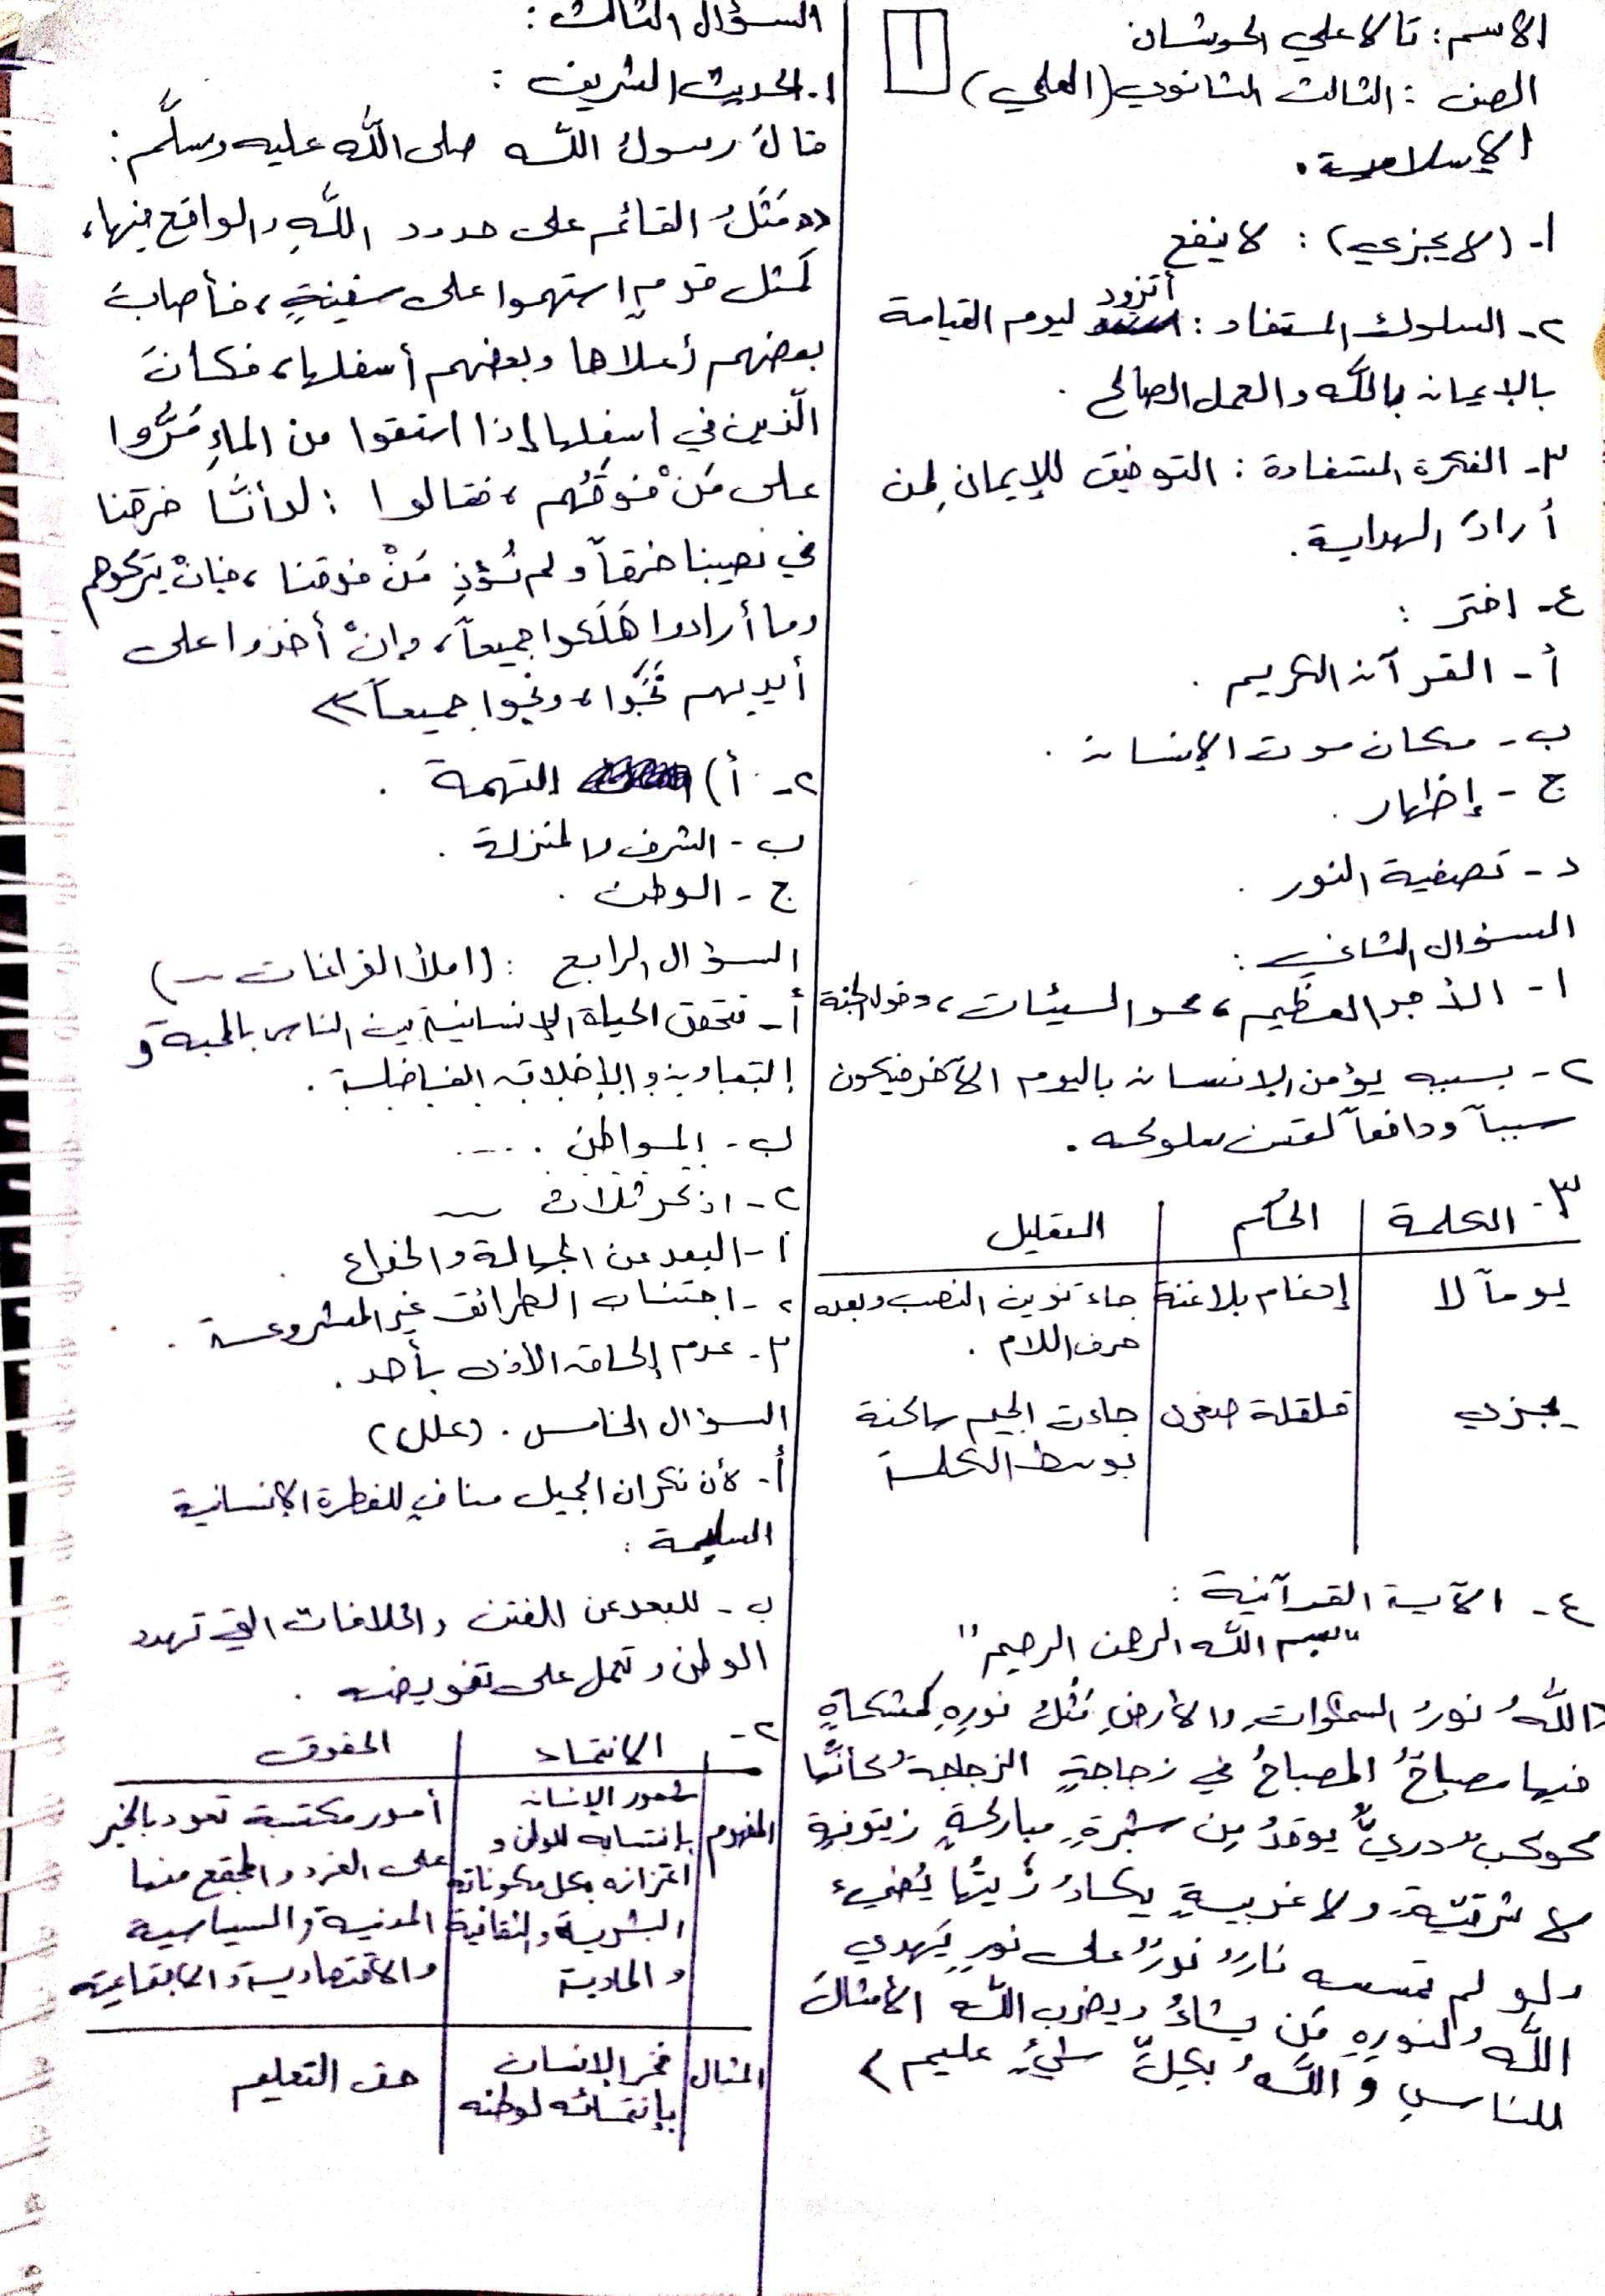 الاسم: تالا علي الحوشان
الصف: الثالث الثانوي (العلمي)
١
الإسلامية.
١- (لا يجزي): لا ينفع
أتزود
٢- السلوك المستفاد: ليوم القيامة
بالإيمان بالله والعمل الصالح.
٣- الفكرة المستفادة: التوفيق للإيمان لمن
أرادَ الهداية.
٤- اختر:
أ- القرآن الكريم.
ب- مكان موت الإنسان.
ج- إظهار.
د- تصفية النور.
السؤال الثاني:
١- الأجر العظيم، محو السيئات، دخول الجنة
٢- بسببه يؤمن الإنسان باليوم الآخر فيكون
سبباً ودافعاً سلوكه.
٣- الكلمة | الحكم | التعليل
يوماً لا | إدغام بلا غنة | جاء تنوين النصب وبعده
حرف اللام.
يجزي | قلقلة صغرى | جاءت الجيم ساكنة
بوسط الكلمة
٤- الآية القرآنية:
"بسم الله الرحمن الرحيم"
(اللَّهُ نورُ السمَّوات والأرضِ مَثَلُ نورِهِ كمشكاةٍ
فيها مصباحٌ المصباحُ في زجاجةٍ الزجاجةُ كأنَّها
كوكبٌ دريٌّ يوقدُ مِن شجرةٍ مباركةٍ زيتونةٍ
لا شرقيَّةٍ ولا غربيةٍ يكادُ زَيتُها يُضيءُ
ولو لم تمسسه نارٌ نورٌ على نورٍ يَهدي
اللَّه لنورِهِ مَن يشاءُ ويضرب اللَّه الأمثالَ
للناسِ وَاللَّهُ بكلِّ شيءٍ عليم)
السؤال الثالث:
١- الحديث الشريف:
قالَ رسولُ اللَّه صلى اللَّه عليه وسلَّم:
((مَثَلُ القائم على حدود اللَّهِ والواقع فيها،
كَمثل قومٍ استهموا على سفينةٍ، فأصابَ
بعضهم أعلاها وبعضهم أسفلها، فكانَ
الّذين في أسفلها إذا استقوا من الماءِ مَرُّوا
على مَنْ فوقَهُم، فقالوا: لو أنَّا خرقنا
في نصيبنا خرقاً ولم نُؤذِ مَنْ فوقنا، فإنْ يتركوهم
وما أرادوا هَلَكوا جميعاً، وإنْ أخذوا على
أيديهم نَجَوا، ونجوا جميعاً))
٢- أ) التهمة.
ب- الشرف والمنزلة.
ج- الوطن.
السؤال الرابع: (املأ الفراغات ...)
أ- تتحقق الحياة الإنسانية بين الناس بالمحبة و
التعاون والأخلاق الفاضلة.
ب- المواطن. ....
٢- اذكر ثلاث ...
١- البعد عن الجهالة والخداع
٢- اجتناب الطرائق غير المشروعة.
٣- عدم إلحاق الأذى بأحد.
السؤال الخامس. (علل)
أ- لأن نكران الجميل منافٍ للفطرة الإنسانية
السليمة:
ب- للبعد عن الفتن والخلافات التي تهدد
الوطن وتعمل على تقويضه.
٢- | الانتماء | الحقوق
المفهوم | شعور الإنسان | أمور مكتسبة تعود بالخير
بانتسابه للوطن و | على الفرد والمجتمع منها
اعتزازه بكل مكوناته | المدنية والسياسية
البشرية والثقافية | والاقتصادية والاجتماعية
والمادية
المثال | فخر الإنسان | حق التعليم
بإنتمائه لوطنه